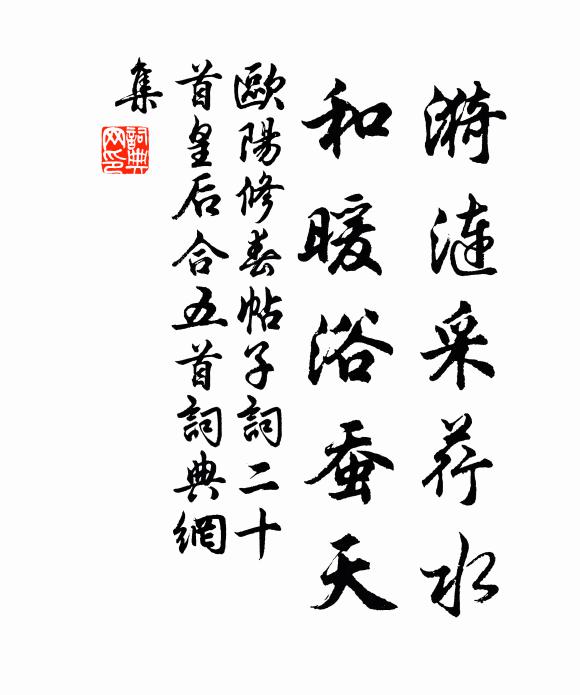 漪漣采荇水
和暖浴蚕天
歐陽修春帖子詞二十
首皇后合五首詞典網
集
詞典
网印